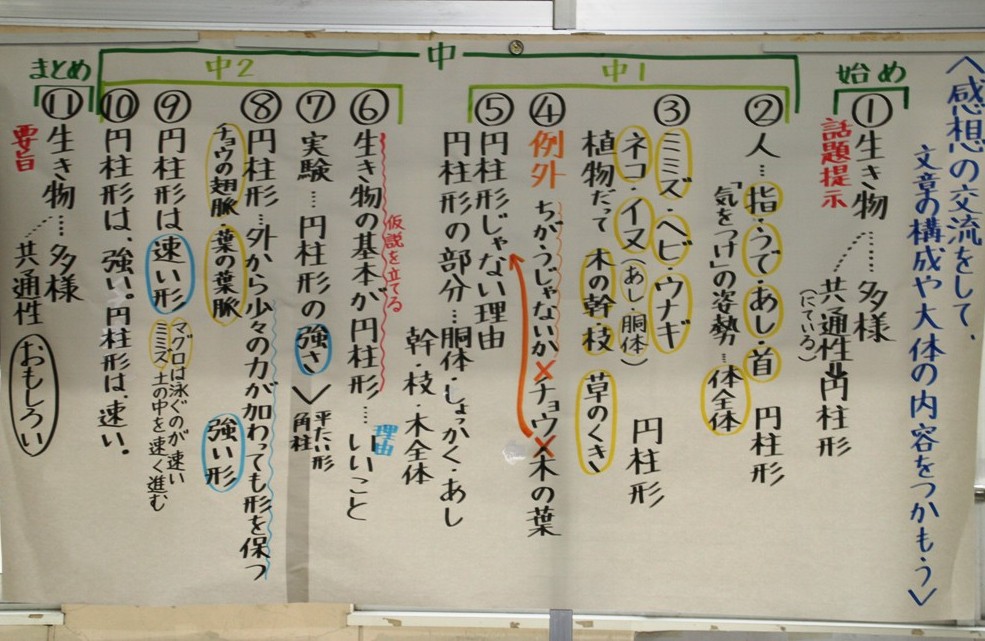 〈感想の交流をして、
文章の構成や大体の内容をつかもう〉
始め
①生き物……多様
……共通性➡円柱形
（にている）
話題提示
中
中1
②人…指・うで・あし・首 円柱形
「気をつけ」の姿勢…体全体
③ミミズ・ヘビ・ウナギ
ネコ・イヌ（あし・胴体） 円柱形
植物だって 木の幹・枝 草のくき
④例外 ちがうじゃないか×チョウ×木の葉
⑤円柱形じゃない理由
円柱形の部分…胴体・しょっかく・あし
幹・枝・木全体
中2
⑥生き物の基本が円柱形……いいこと
仮説を立てる
理由
⑦実験……円柱形の強さ＞平たい形
角柱
⑧円柱形…外から少々の力が加わっても形を保つ
チョウの翅脈・葉の葉脈 強い形
⑨円柱形は速い形
マグロは泳ぐのが速い
ミミズ土の中を速く進む
⑩円柱形は、強い。円柱形は、速い。
まとめ
⑪生き物……多様
……共通性 おもしろい
要旨